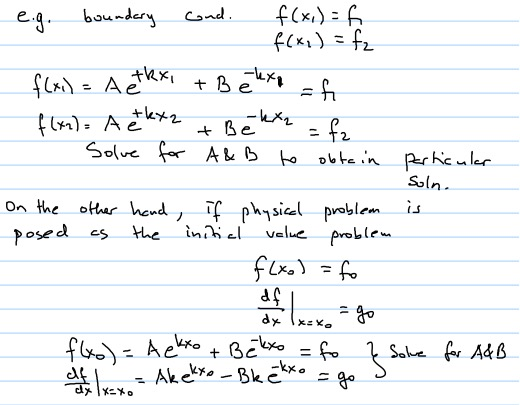 e.g. boundary cond. f(x₁) = f₁
f(x₂) = f₂
f(x₁) = A e^{+kx₁} + B e^{-kx₁} = f₁
f(x₂) = A e^{+kx₂} + B e^{-kx₂} = f₂
Solve for A & B to obtain particular
soln.
On the other hand, if physical problem is
posed as the initial value problem
f(x₀) = f₀
df/dx |ₓ₌ₓ₀ = g₀
f(x₀) = A e^{kx₀} + B e^{-kx₀} = f₀ } Solve for A&B
df/dx |ₓ₌ₓ₀ = Ak e^{kx₀} - Bk e^{-kx₀} = g₀